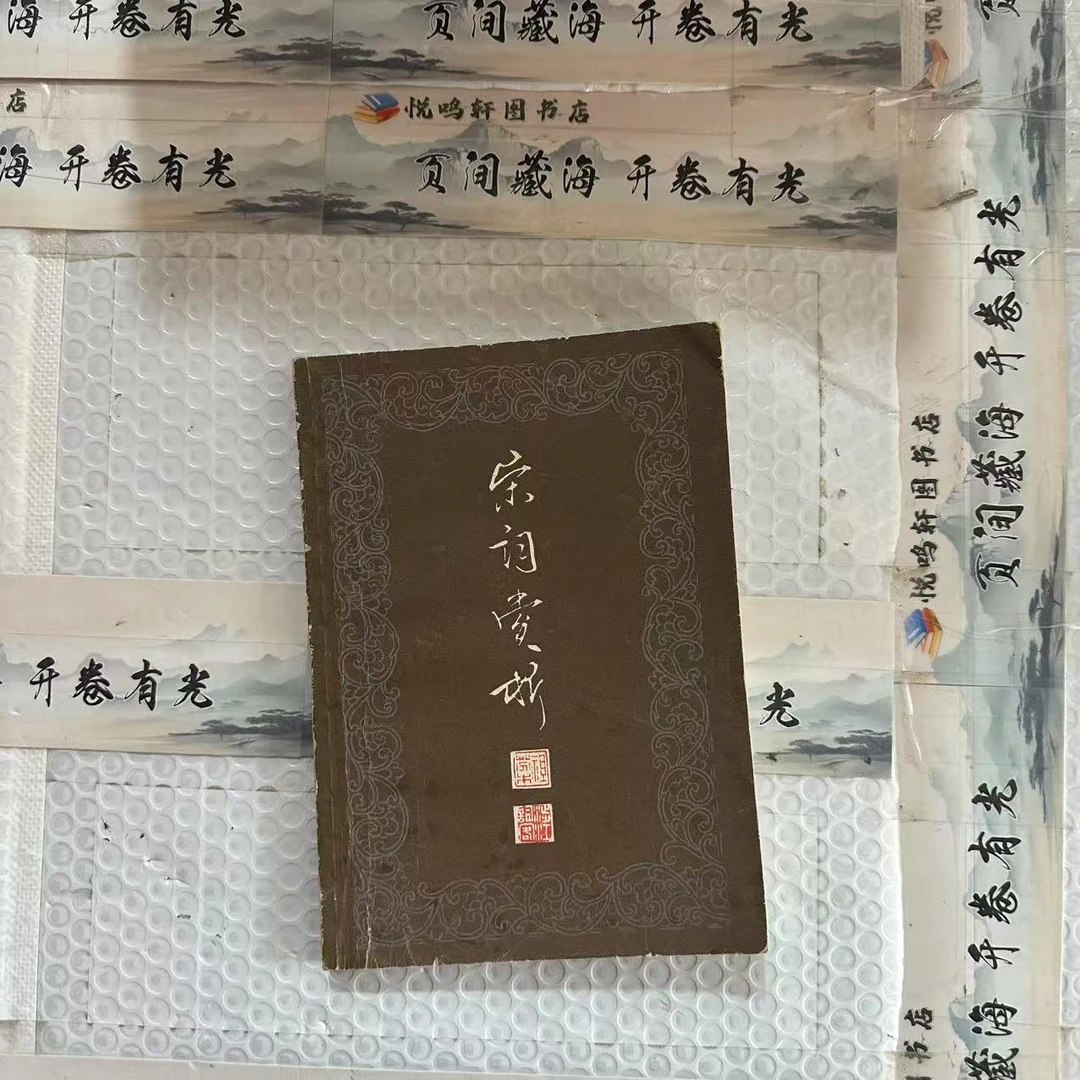 海 开卷有光
页间藏海 开卷有光
店
悦鸣轩图书店
海 开卷有光
页间藏海 开卷有光
宋词赏析
开卷有光
光
页间藏海 开卷有光
悦鸣轩图书店
藏海 开卷有光
书店